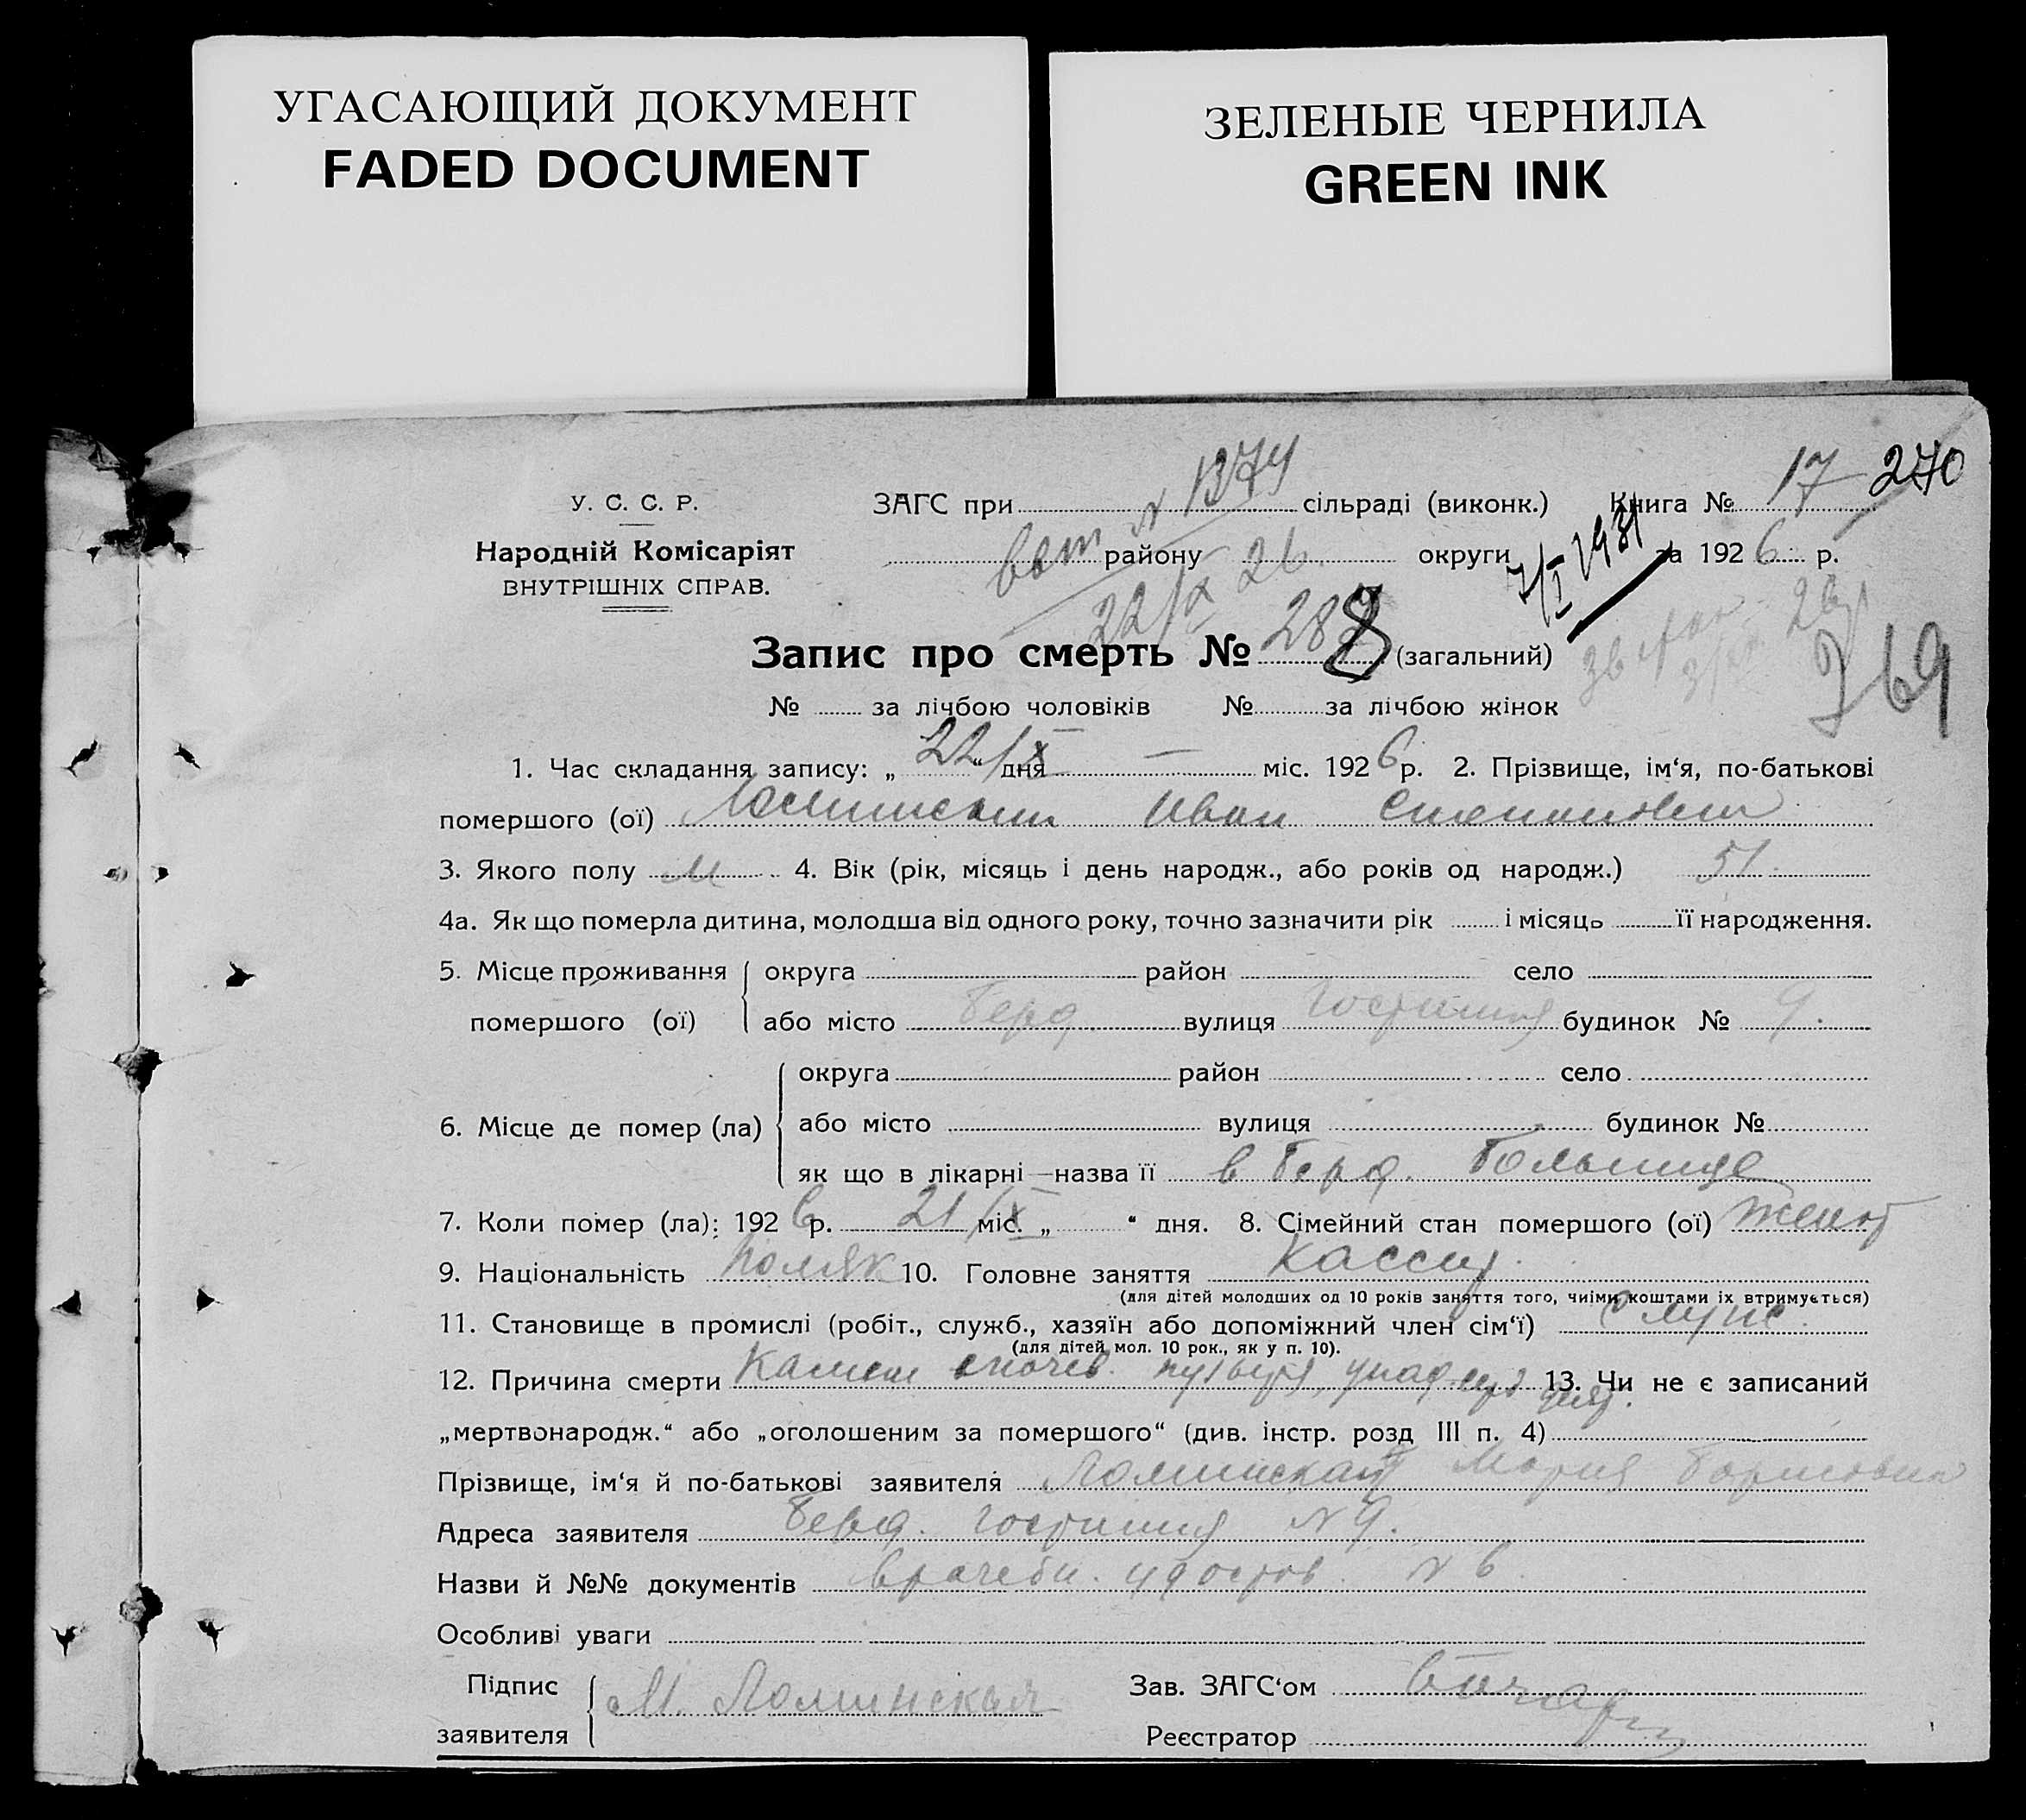 УГАСАЮЩИЙ ДОКУМЕНТ
FADED DOCUMENT
ЗЕЛЕНЫЕ ЧЕРНИЛА
GREEN INK
17 270
У. С. С. Р. ЗАГС при № 1374 сільраді (виконк.) Книга №
Народній Комісаріят району округи за 1926 р.
ВНУТРІШНІХ СПРАВ.
22/X 26.
7/I 1931
Запис про смерть № 288 (загальний)
769
№ за лічбою чоловіків № за лічбою жінок
1. Час складання запису: „22/X“ дня — міс. 1926 р. 2. Прізвище, ім‘я, по-батькові
помершого (ої) Ломинский Иван Степанович
3. Якого полу м 4. Вік (рік, місяць і день народж., або років од народж.) 51.
4а. Як що померла дитина, молодша від одного року, точно зазначити рік і місяць її народження.
5. Місце проживання округа район село
помершого (ої) або місто Берд. вулиця будинок № 9.
6. Місце де помер (ла) округа район село
або місто вулиця будинок №
як що в лікарні—назва її в Берд. больнице
7. Коли помер (ла): 1926 р. 21/X міс. „ “ дня. 8. Сімейний стан помершого (ої) женат
9. Національність поляк 10. Головне заняття кассир.
(для дітей молодших од 10 років заняття того, чиїми коштами їх втримується)
11. Становище в промислі (робіт., служб., хазяїн або допоміжний член сім‘ї) служ.
(для дітей мол. 10 рок., як у п. 10).
12. Причина смерти Камни мочев. пузыря, упад. серд. деят. 13. Чи не є записаний
„мертвонародж.“ або „оголошеним за помершого“ (див. інстр. розд III п. 4)
Прізвище, ім‘я й по-батькові заявителя Ломинская Мария Борисовна
Адреса заявителя Берд. № 9.
Назви й №№ документів Врачебн. удостов. № 6
Особливі уваги
Підпис заявителя М. Ломинская Зав. ЗАГС‘ом
Реєстратор